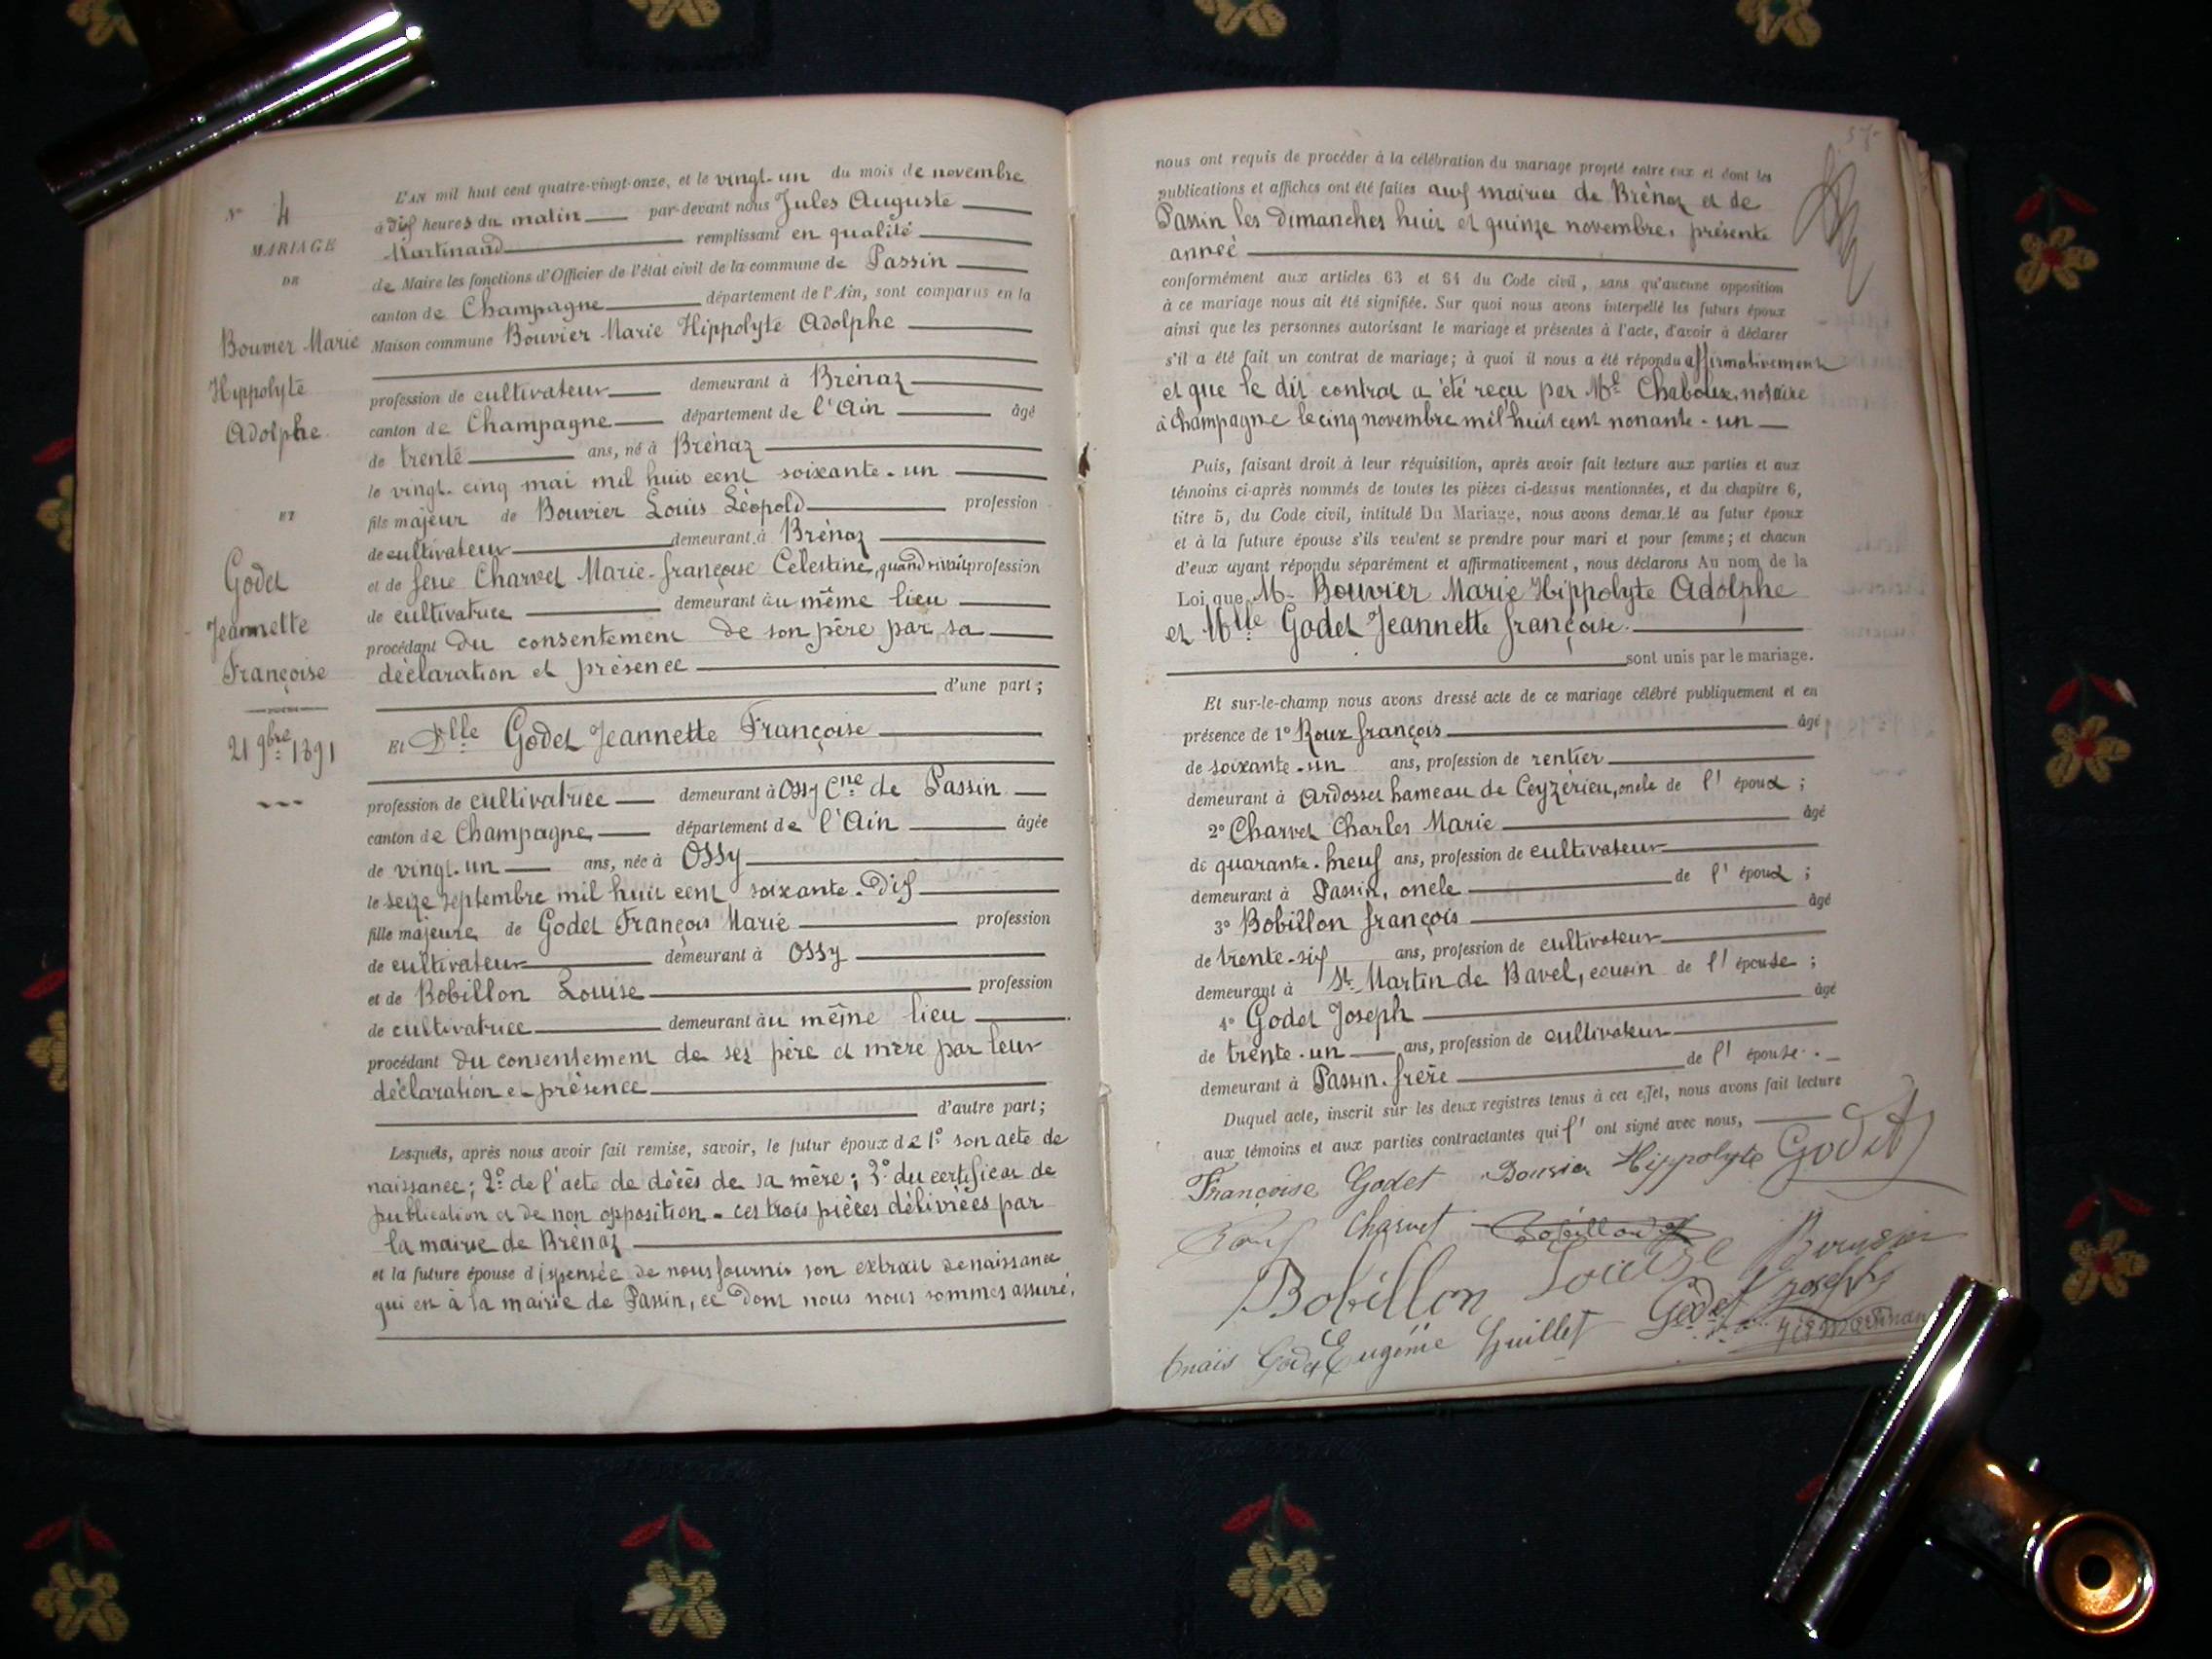 N° 4
MARIAGE
DE
Bouvier Marie
Hippolyte
Adolphe
ET
Godet
Jeannette
Françoise
21 9bre 1891
L'AN mil huit cent quatre-vingt-onze, et le vingt-un du mois de novembre
à dix heures du matin par-devant nous Jules Auguste
Martinand remplissant en qualité
de Maire les fonctions d'Officier de l'état civil de la commune de Passin
canton de Champagne département de l'Ain, sont comparus en la
Maison commune Bouvier Marie Hippolyte Adolphe
profession de cultivateur demeurant à Brénaz
canton de Champagne département de l'Ain âgé
de trente ans, né à Brénaz
le vingt-cinq mai mil huit cent soixante-un
fils majeur de Bouvier Louis Léopold profession
de cultivateur demeurant à Brénaz
et de feue Charvet Marie-françoise Célestine, quand vivait profession
de cultivatrice demeurant au même lieu
procédant du consentement de son père par sa
déclaration et présence
d'une part;
Et Dlle Godet Jeannette Françoise
profession de cultivatrice demeurant à Ossy Cne de Passin
canton de Champagne département de l'Ain âgée
de vingt-un ans, née à Ossy
le seize septembre mil huit cent soixante-dix
fille majeure de Godet François Marie profession
de cultivateur demeurant à Ossy
et de Bobillon Louise profession
de cultivatrice demeurant au même lieu
procédant du consentement de ses père et mère par leur
déclaration et présence
d'autre part;
Lesquels, après nous avoir fait remise, savoir, le futur époux de 1° son acte de
naissance; 2° de l'acte de décès de sa mère; 3° du certificat de
publication et de non opposition - ces trois pièces délivrées par
la mairie de Brénaz
et la future épouse dispensée de nous fournir son extrait de naissance
qui est à la mairie de Passin, ce dont nous nous sommes assuré,
57
nous ont requis de procéder à la célébration du mariage projeté entre eux et dont les
publications et affiches ont été faites aux mairies de Brénaz et de
Passin les dimanches huit et quinze novembre, présente
année
conformément aux articles 63 et 64 du Code civil, sans qu'aucune opposition
à ce mariage nous ait été signifiée. Sur quoi nous avons interpellé les futurs époux
ainsi que les personnes autorisant le mariage et présentes à l'acte, d'avoir à déclarer
s'il a été fait un contrat de mariage; à quoi il nous a été répondu affirmativement
et que le dit contrat a été reçu par Me Chaboux, notaire
à Champagne le cinq novembre mil huit cent nonante-un
Puis, faisant droit à leur réquisition, après avoir fait lecture aux parties et aux
témoins ci-après nommés de toutes les pièces ci-dessus mentionnées, et du chapitre 6,
titre 5, du Code civil, intitulé Du Mariage, nous avons demandé au futur époux
et à la future épouse s'ils veulent se prendre pour mari et pour femme; et chacun
d'eux ayant répondu séparément et affirmativement, nous déclarons Au nom de la
Loi que M. Bouvier Marie Hippolyte Adolphe
et Mlle Godet Jeannette françoise
sont unis par le mariage.
Et sur-le-champ nous avons dressé acte de ce mariage célébré publiquement et en
présence de 1° Roux françois âgé
de soixante-un ans, profession de rentier
demeurant à Ardosset hameau de Ceyzérieu, oncle de l'époux;
2° Charvet Charles Marie âgé
de quarante-neuf ans, profession de cultivateur
demeurant à Passin, oncle de l'époux;
3° Bobillon françois âgé
de trente-six ans, profession de cultivateur
demeurant à St Martin de Bavel, cousin de l'épouse;
4° Godet Joseph âgé
de trente-un ans, profession de cultivateur
demeurant à Passin. frère de l'épouse.
Duquel acte, inscrit sur les deux registres tenus à cet effet, nous avons fait lecture
aux témoins et aux parties contractantes qui l'ont signé avec nous,
Françoise Godet Bouvier Hippolyte Godet
Roux Charvet Bobillon
Bobillon Louise Bouvier
Godet Joseph
Godet Eugénie Guillet